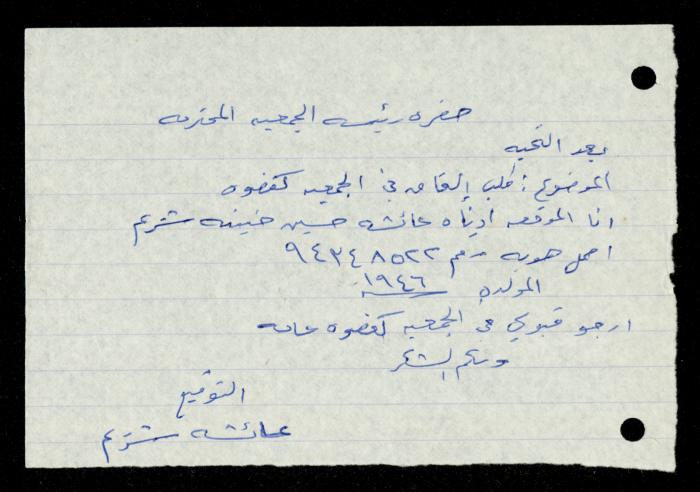 حضرة رئيسة الجمعية المحترمة
بعد التحية
الموضوع : طلب إلتحاق في الجمعية كعضوة
انا الموقعة ادناه عائشة حسين شتيم
احمل هوية رقم ٩٤٣٤٨٥٢٢
المولدة ١٩٤٦
ارجو قبولي في الجمعية كعضوة عاملة
ولكم الشكر
التوقيع
عائشة شتيم